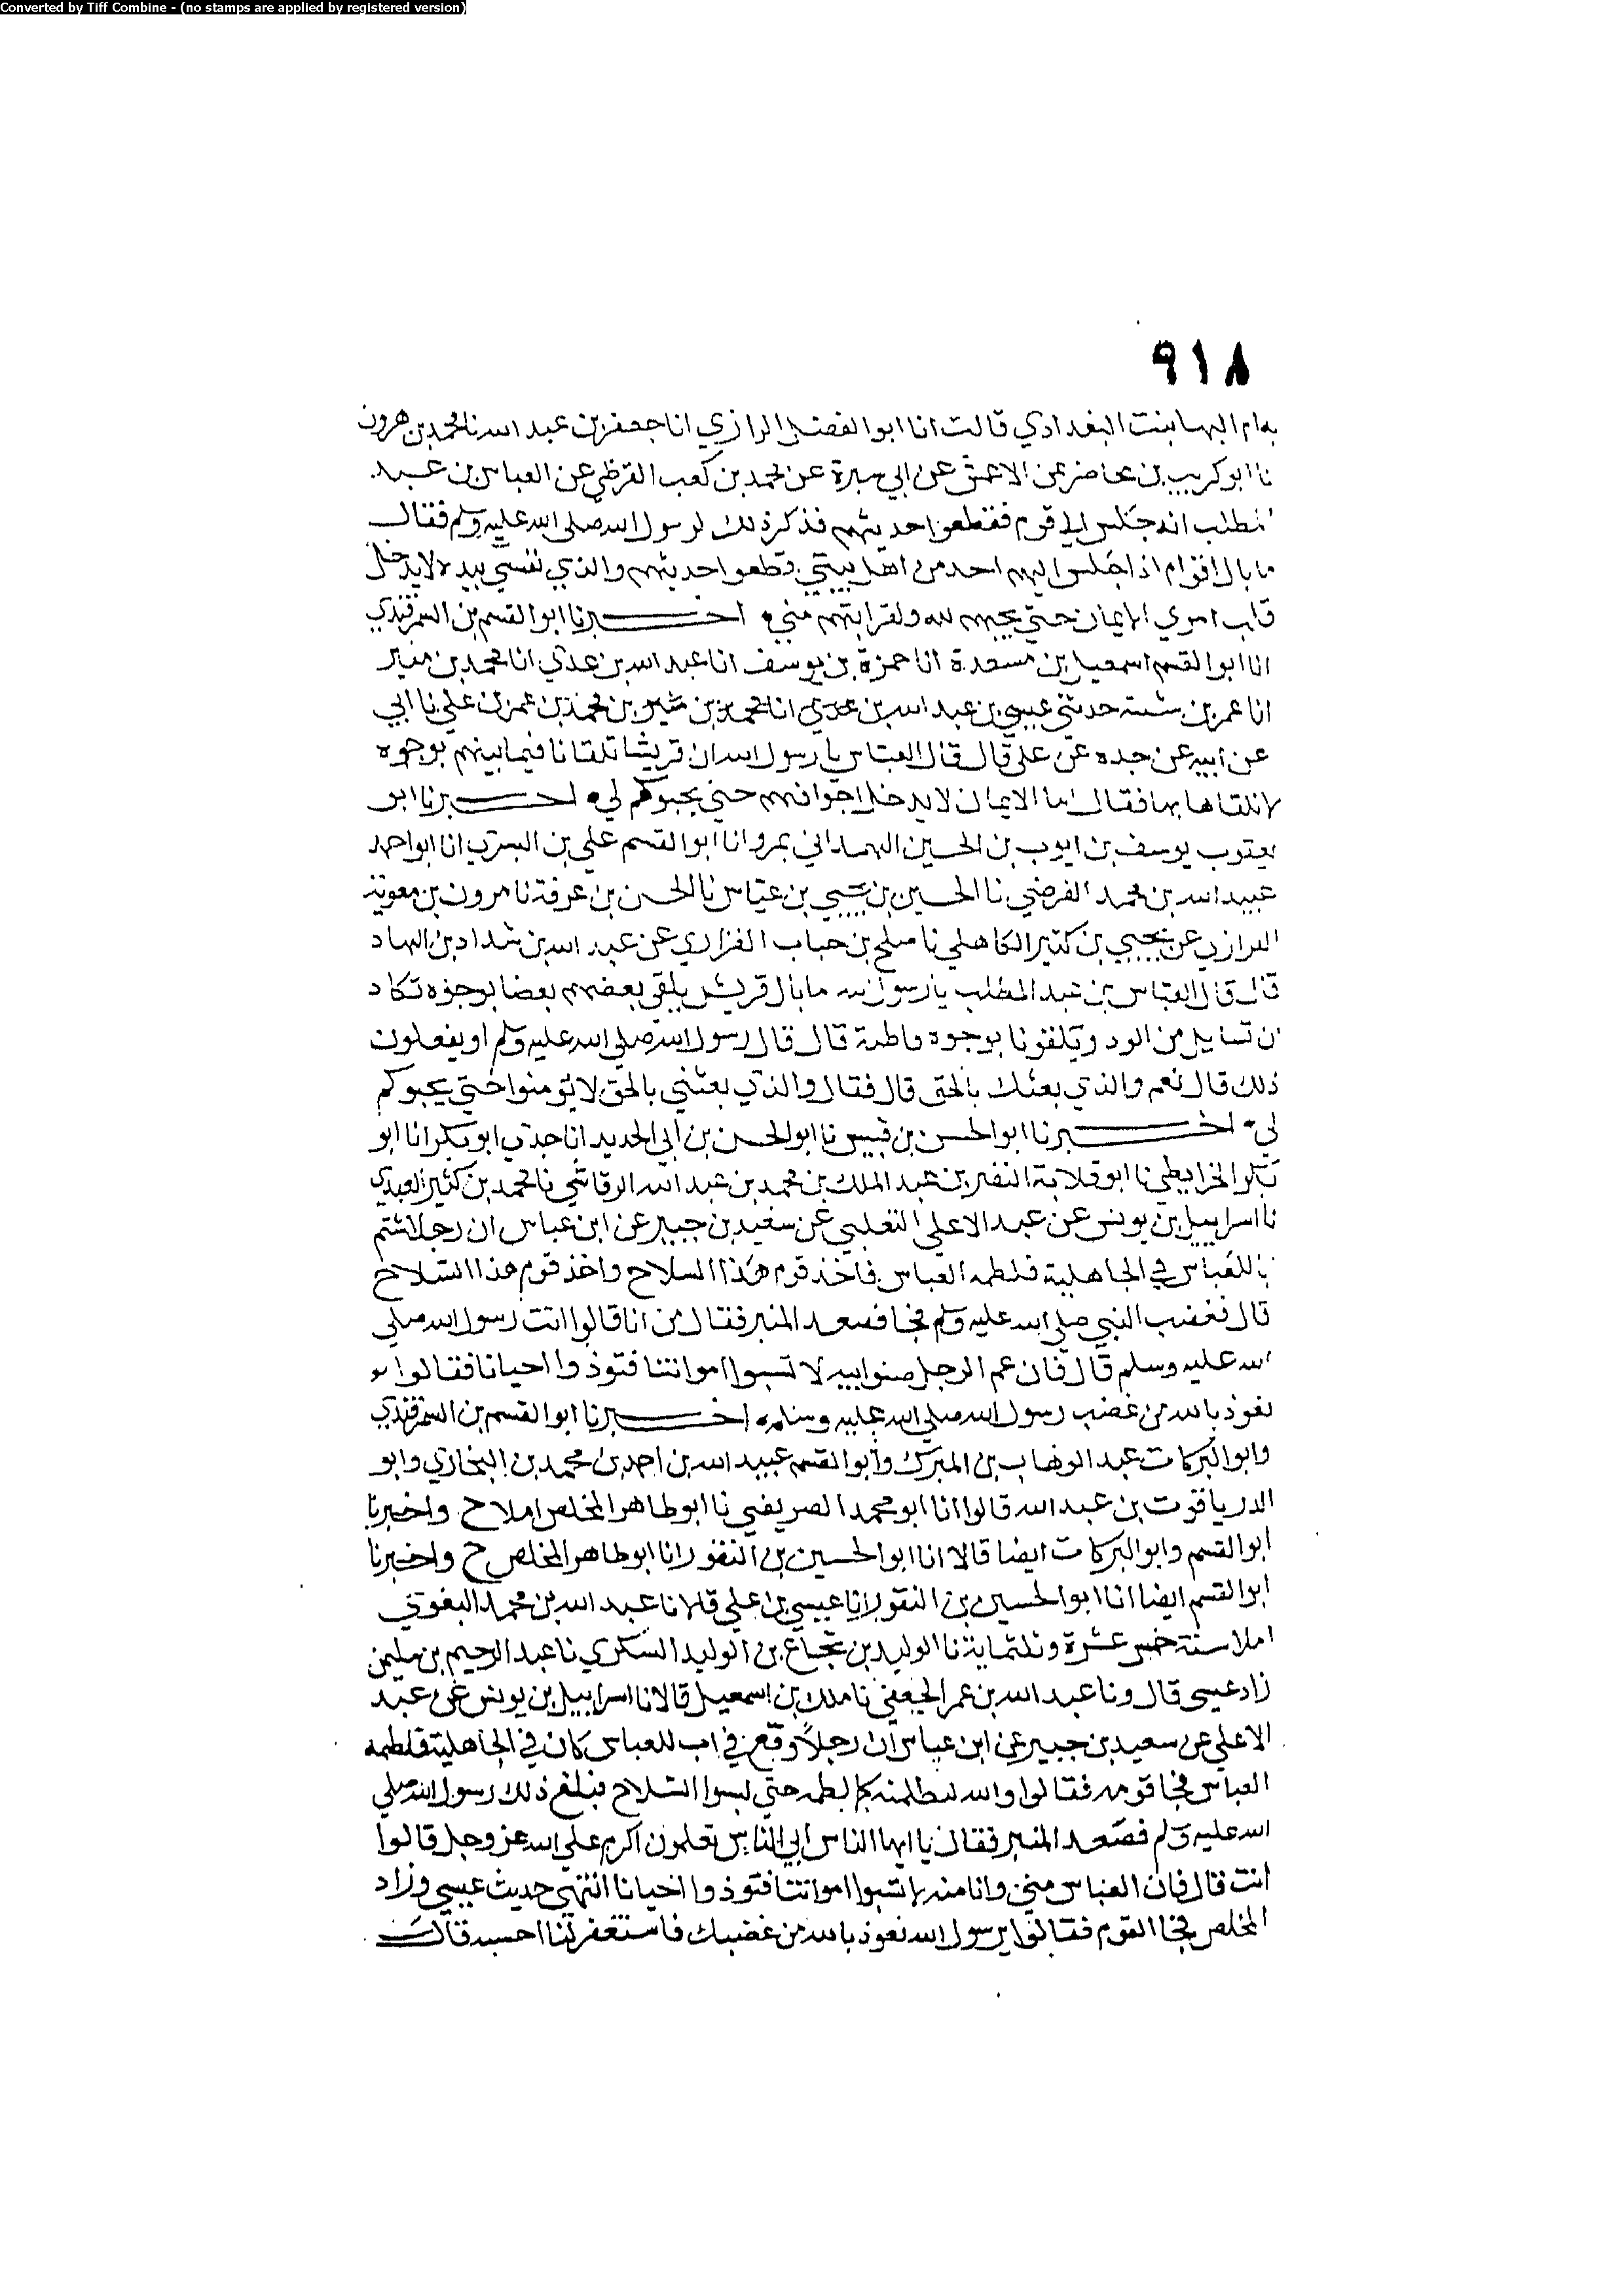 Converted by Tiff Combine - (no stamps are applied by registered version)
٩١٨
به ام البها بنت البغدادي قالت انا ابو الفضل الرازي انا جعفر بن عبد الله نا محمد بن هرون
نا ابو كريب بن محاضر عن الاعمش عن ابي سبرة عن محمد بن كعب القرظي عن العباس بن عبد
المطلب انه جلس الي قوم فقطعوا حديثهم فذكر ذلك لرسول الله صلي الله عليه وسلم فقال
ما بال اقوام اذا جلس اليهم احد من اهل بيتي قطعوا حديثهم والذي نفسي بيده لا يدخل
قلب امري الايمان حتي يحبهم لله ولقرابتهم مني اخبرنا ابو القسم بن السمرقندي
انا ابو القسم اسمعيل بن مسعدة انا حمزة بن يوسف انا عبد الله بن عدي انا محمد بن منير
انا عمر بن شبة حدثني عيسي بن عبد الله بن محمد بن عمر بن علي نا ابي
عن ابيه عن جده عن علي قال قال العباس يا رسول الله ان قريشا تلقانا فيما بينهم بوجوه
لا نلقاها بها فقال اما الايمان لا يدخل اجوافهم حتي يحبوكم لي اخبرنا ابو
يعقوب يوسف بن ايوب بن الحسين الهمداني بمرو انا ابو القسم علي بن البسري انا ابو احمد
عبيد الله بن محمد الفرضي نا الحسين بن يحيي بن عياش نا الحسن بن عرفة نا مرون بن معوية
الفزاري عن يحيي بن كثير الكاهلي نا صلح بن حباب الفزاري عن عبد الله بن شداد بن الهاد
قال قال العباس بن عبد المطلب يا رسول الله ما بال قريش يلقي بعضهم بعضا بوجوه تكاد
ان تسايل من الود وتلقونا بوجوه قاطبة قال قال رسول الله صلي الله عليه وسلم او يفعلون
ذلك قال نعم والذي بعثك بالحق قال فقال والذي بعثني بالحق لا يؤمنوا حتي يحبوكم
لي اخبرنا ابو الحسن بن قبيس نا ابو الحسن بن ابي الحديد انا جدي ابو بكر انا ابو
بكر الخرايطي نا ابو قلابة عبد الملك بن محمد بن عبد الله الرقاشي نا محمد بن كثير العبدي
نا اسراييل بن يونس عن عبد الاعلي الثعلبي عن سعيد بن جبير عن ابن عباس ان رجلا شتم
ابا للعباس في الجاهلية فلطمه العباس فاخذ قوم هذا السلاح واخذ قوم هذا السلاح
قال فغضب النبي صلي الله عليه وسلم فجا فصعد المنبر فقال من انا قالوا انت رسول الله صلي
الله عليه وسلم قال فان عم الرجل صنو ابيه لا تسبوا امواتنا فتوذوا احيانا فقالوا
نعوذ بالله من غضب رسول الله صلي الله عليه وسلم اخبرنا ابو القسم بن السمرقندي
وابو البركات عبد الوهاب بن المبرك وابو القسم عبيد الله بن احمد بن محمد بن البخاري وابو
الدر ياقوت بن عبد الله قالوا انا ابو محمد الصريفيني نا ابو طاهر المخلص املا ح واخبرنا
ابو القسم وابو البركات ايضا قالا انا ابو الحسين بن النقور انا ابو طاهر المخلص ح واخبرنا
ابو القسم ايضا انا ابو الحسين بن النقور انا عيسي بن علي قالا نا عبد الله بن محمد البغوي
املا سنة خمس عشرة وثلثماية نا الوليد بن شجاع بن الوليد السكري نا عبد الرحيم بن سليمن
زاد عيسي قال ونا عبد الله بن عمر الجعفي نا ملك بن اسمعيل قالا نا اسراييل بن يونس عن عبد
الاعلي عن سعيد بن جبير عن ابن عباس ان رجلاً وقع في اب للعباس كان في الجاهلية فلطمه
العباس فجا قومه فقالوا والله لنلطمنه كما لطمه حتي لبسوا السلاح فبلغ ذلك رسول الله صلي
الله عليه وسلم فصعد المنبر فقال يا ايها الناس اي الناس تعلمون اكرم علي الله عز وجل قالوا
انت قال فان العباس مني وانا منه لا تسبوا امواتنا فتوذوا احيانا انتهي حديث عيسي وزاد
المخلص فجا القوم فقالوا يرسول الله نعوذ بالله من غضبك فاستغفر لنا احسبه قال